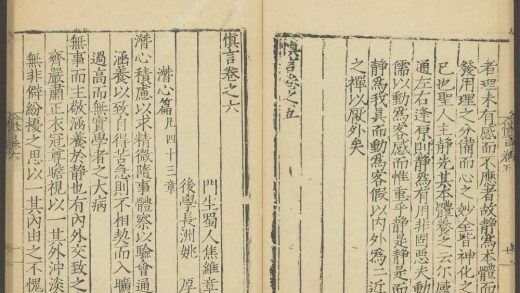 者理未有感而不應者故靜為本體而
發用理之分備而心之妙全皆神化之
已也聖人主靜先其本體養之云尔感
通左右逢原則靜為有用非固惡夫動
儒以動為客感而惟重乎靜是靜是而
靜為我真而動為客假以內外為二近
之禪以厭外矣
慎言卷之五
慎言卷之六
門生蜀人焦維章
後學長洲姚 厚
潛心篇凡四十三章
潛心積慮以求精微隨事體察以驗會通
涵養以致自得苦急則不相契而入曠
過高而無實學者之大病
無事而主敬涵養於靜也有內外交致之
齊嚴肅正衣冠尊瞻視以一其外沖淡
無非僻紛擾之思以一其內由之不愧